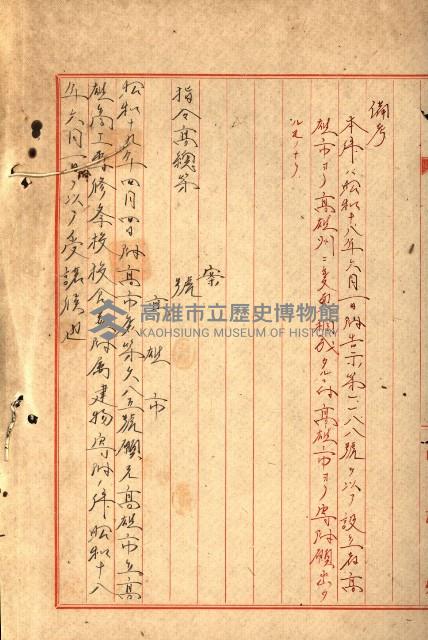 備考
本件ハ昭和十八年六月一日附告示第六八八號ヲ以テ設立者高
雄市ヨリ高雄州ニ変更相成タルニ付高雄市ヨリ寄附願出タ
ルモノナリ
案
指令高總第　號
高雄市
昭和十九年四月四日附高市庶第欠八五號願元高雄市立高
雄商工専修学校校舎並附属建物寄附ノ件昭和十八
年六月一日ヲ以テ受諾候也
高雄市立歷史博物館
KAOHSIUNG MUSEUM OF HISTORY